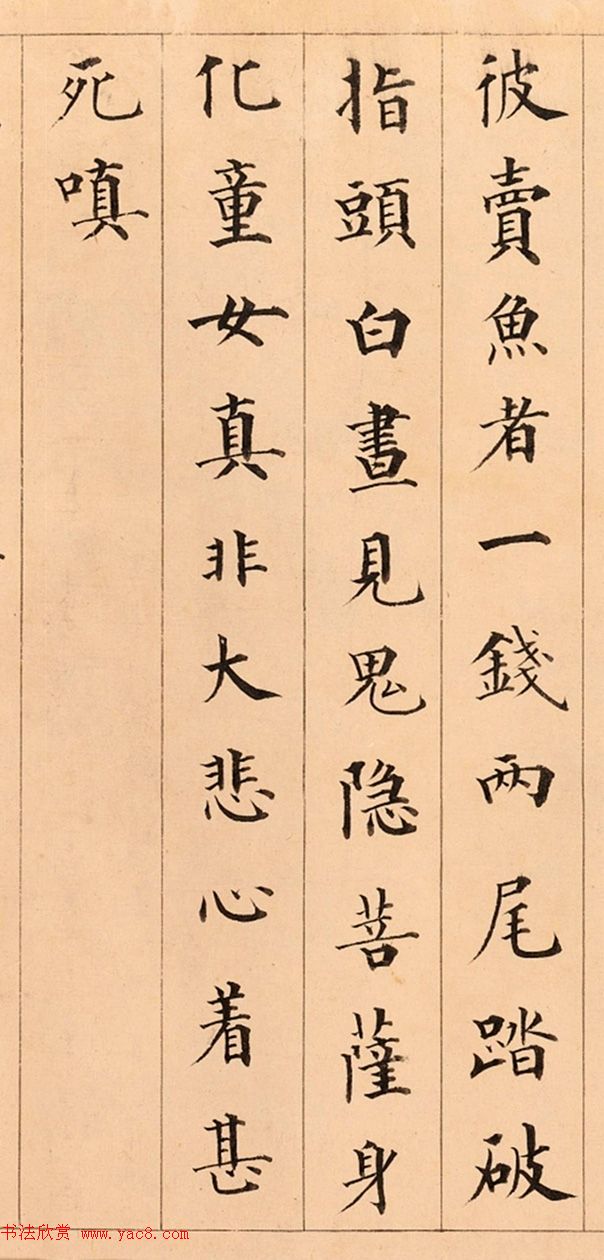 彼賣魚者一錢两尾踏破
指頭白晝見鬼隐菩薩身
化童女真非大悲心着甚
死嗔
书法欣赏 www.yac8.com